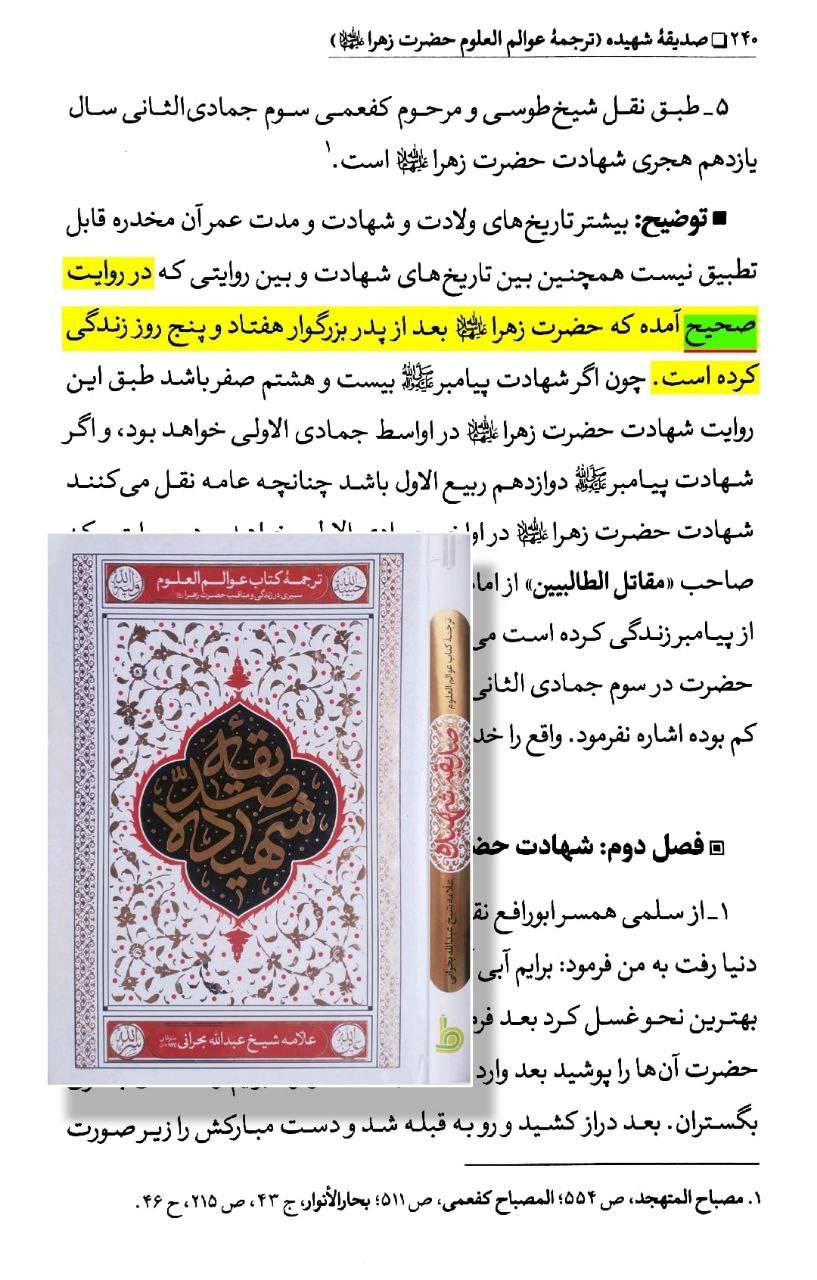 ۲۴۰ ❏ صدیقهٔ شهیده (ترجمهٔ عوالم العلوم حضرت زهرا علیها السلام)
۵ـ طبق نقل شیخ طوسی و مرحوم کفعمی سوم جمادی‌الثانی سال
یازدهم هجری شهادت حضرت زهرا علیها السلام است.۱
■ توضیح: بیشتر تاریخ‌های ولادت و شهادت و مدت عمر آن مخدره قابل
تطبیق نیست همچنین بین تاریخ‌های شهادت و بین روایتی که در روایت
صحیح آمده که حضرت زهرا علیها السلام بعد از پدر بزرگوار هفتاد و پنج روز زندگی
کرده است. چون اگر شهادت پیامبر ﷺ بیست و هشتم صفر باشد طبق این
روایت شهادت حضرت زهرا علیها السلام در اواسط جمادی الاولی خواهد بود، و اگر
شهادت پیامبر ﷺ دوازدهم ربیع الاول باشد چنانچه عامه نقل می‌کنند
شهادت حضرت زهرا علیها السلام در
صاحب «مقاتل الطالبیین» از
از پیامبر زندگی کرده است
حضرت در سوم جمادی الثانی
کم بوده اشاره نفرمود. واقع را
▣ فصل دوم: شهادت
۱ـ از سلمی همسر ابورافع
دنیا رفت به من فرمود: برایم آبی
بهترین نحو غسل کرد بعد
حضرت آن‌ها را پوشید بعد وارد
بگستران. بعد دراز کشید و رو به قبله شد و دست مبارکش را زیر صورت
۱. مصباح المتهجد، ص ۵۵۴؛ المصباح کفعمی، ص ۵۱۱؛ بحارالأنوار، ج ۴۳، ص ۲۱۵، ح ۴۶.
ترجمهٔ کتاب عوالم العلوم
سیری در زندگی و مناقب حضرت زهرا
صدیقهٔ شهیده
علامه شیخ عبدالله بحرانی
ترجمهٔ کتاب عوالم العلوم
صدیقهٔ شهیده
علامه شیخ عبدالله بحرانی